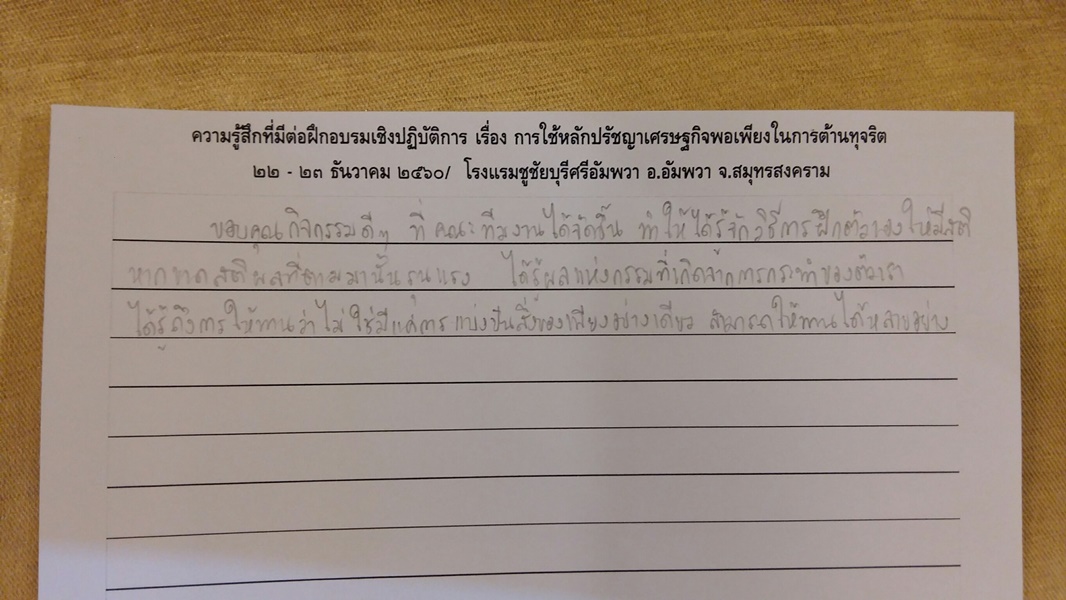 ความรู้สึกที่มีต่อฝึกอบรมเชิงปฏิบัติการ เรื่อง การใช้หลักปรัชญาเศรษฐกิจพอเพียงในการต้านทุจริต
๒๒ - ๒๓ ธันวาคม ๒๕๖๐/ โรงแรมชูชัยบุรีศรีอัมพวา อ.อัมพวา จ.สมุทรสงคราม
ขอบคุณกิจกรรมดีๆ ที่ คณะทีมงานได้จัดขึ้น ทำให้ได้รู้จักวิธีการฝึกตัวเองให้มีสติ
หากขาดสติผลที่ตามมานั้นรุนแรง ได้รู้ผลแห่งกรรมที่เกิดจากการกระทำของตัวเรา
ได้รู้ถึงการให้ทานว่าไม่ใช่มีแค่การแบ่งปันสิ่งของเพียงอย่างเดียว สามารถให้ทานได้หลายอย่าง